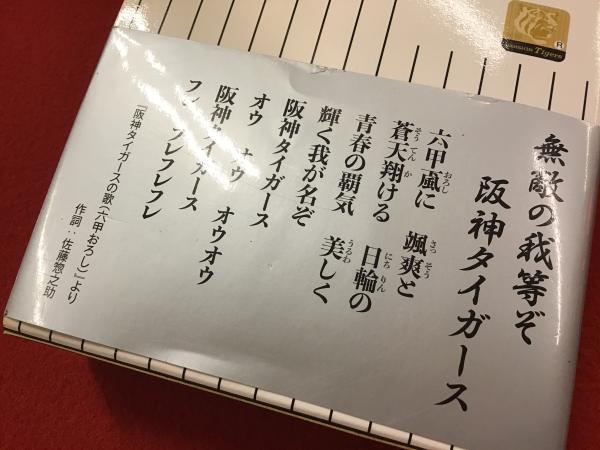 無敵の我等ぞ
阪神タイガース
六甲颪に 颯爽と
蒼天翔ける 日輪の
青春の覇気 美しく
輝く我が名ぞ
阪神タイガース
オウ オウ オウオウ
阪神タイガース
フレ フレフレフレ
『阪神タイガースの歌(六甲おろし)』より
作詞:佐藤惣之助
HANSHIN Tigers
®